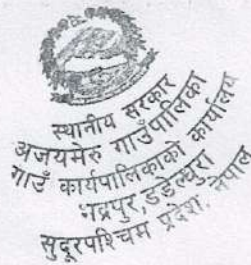 स्थानीय सरकार
अजयमेरु गाउँपालिका
गाउँ कार्यपालिकाको कार्यालय
भद्रपुर, डडेल्धुरा
सुदूरपश्चिम प्रदेश, नेपाल